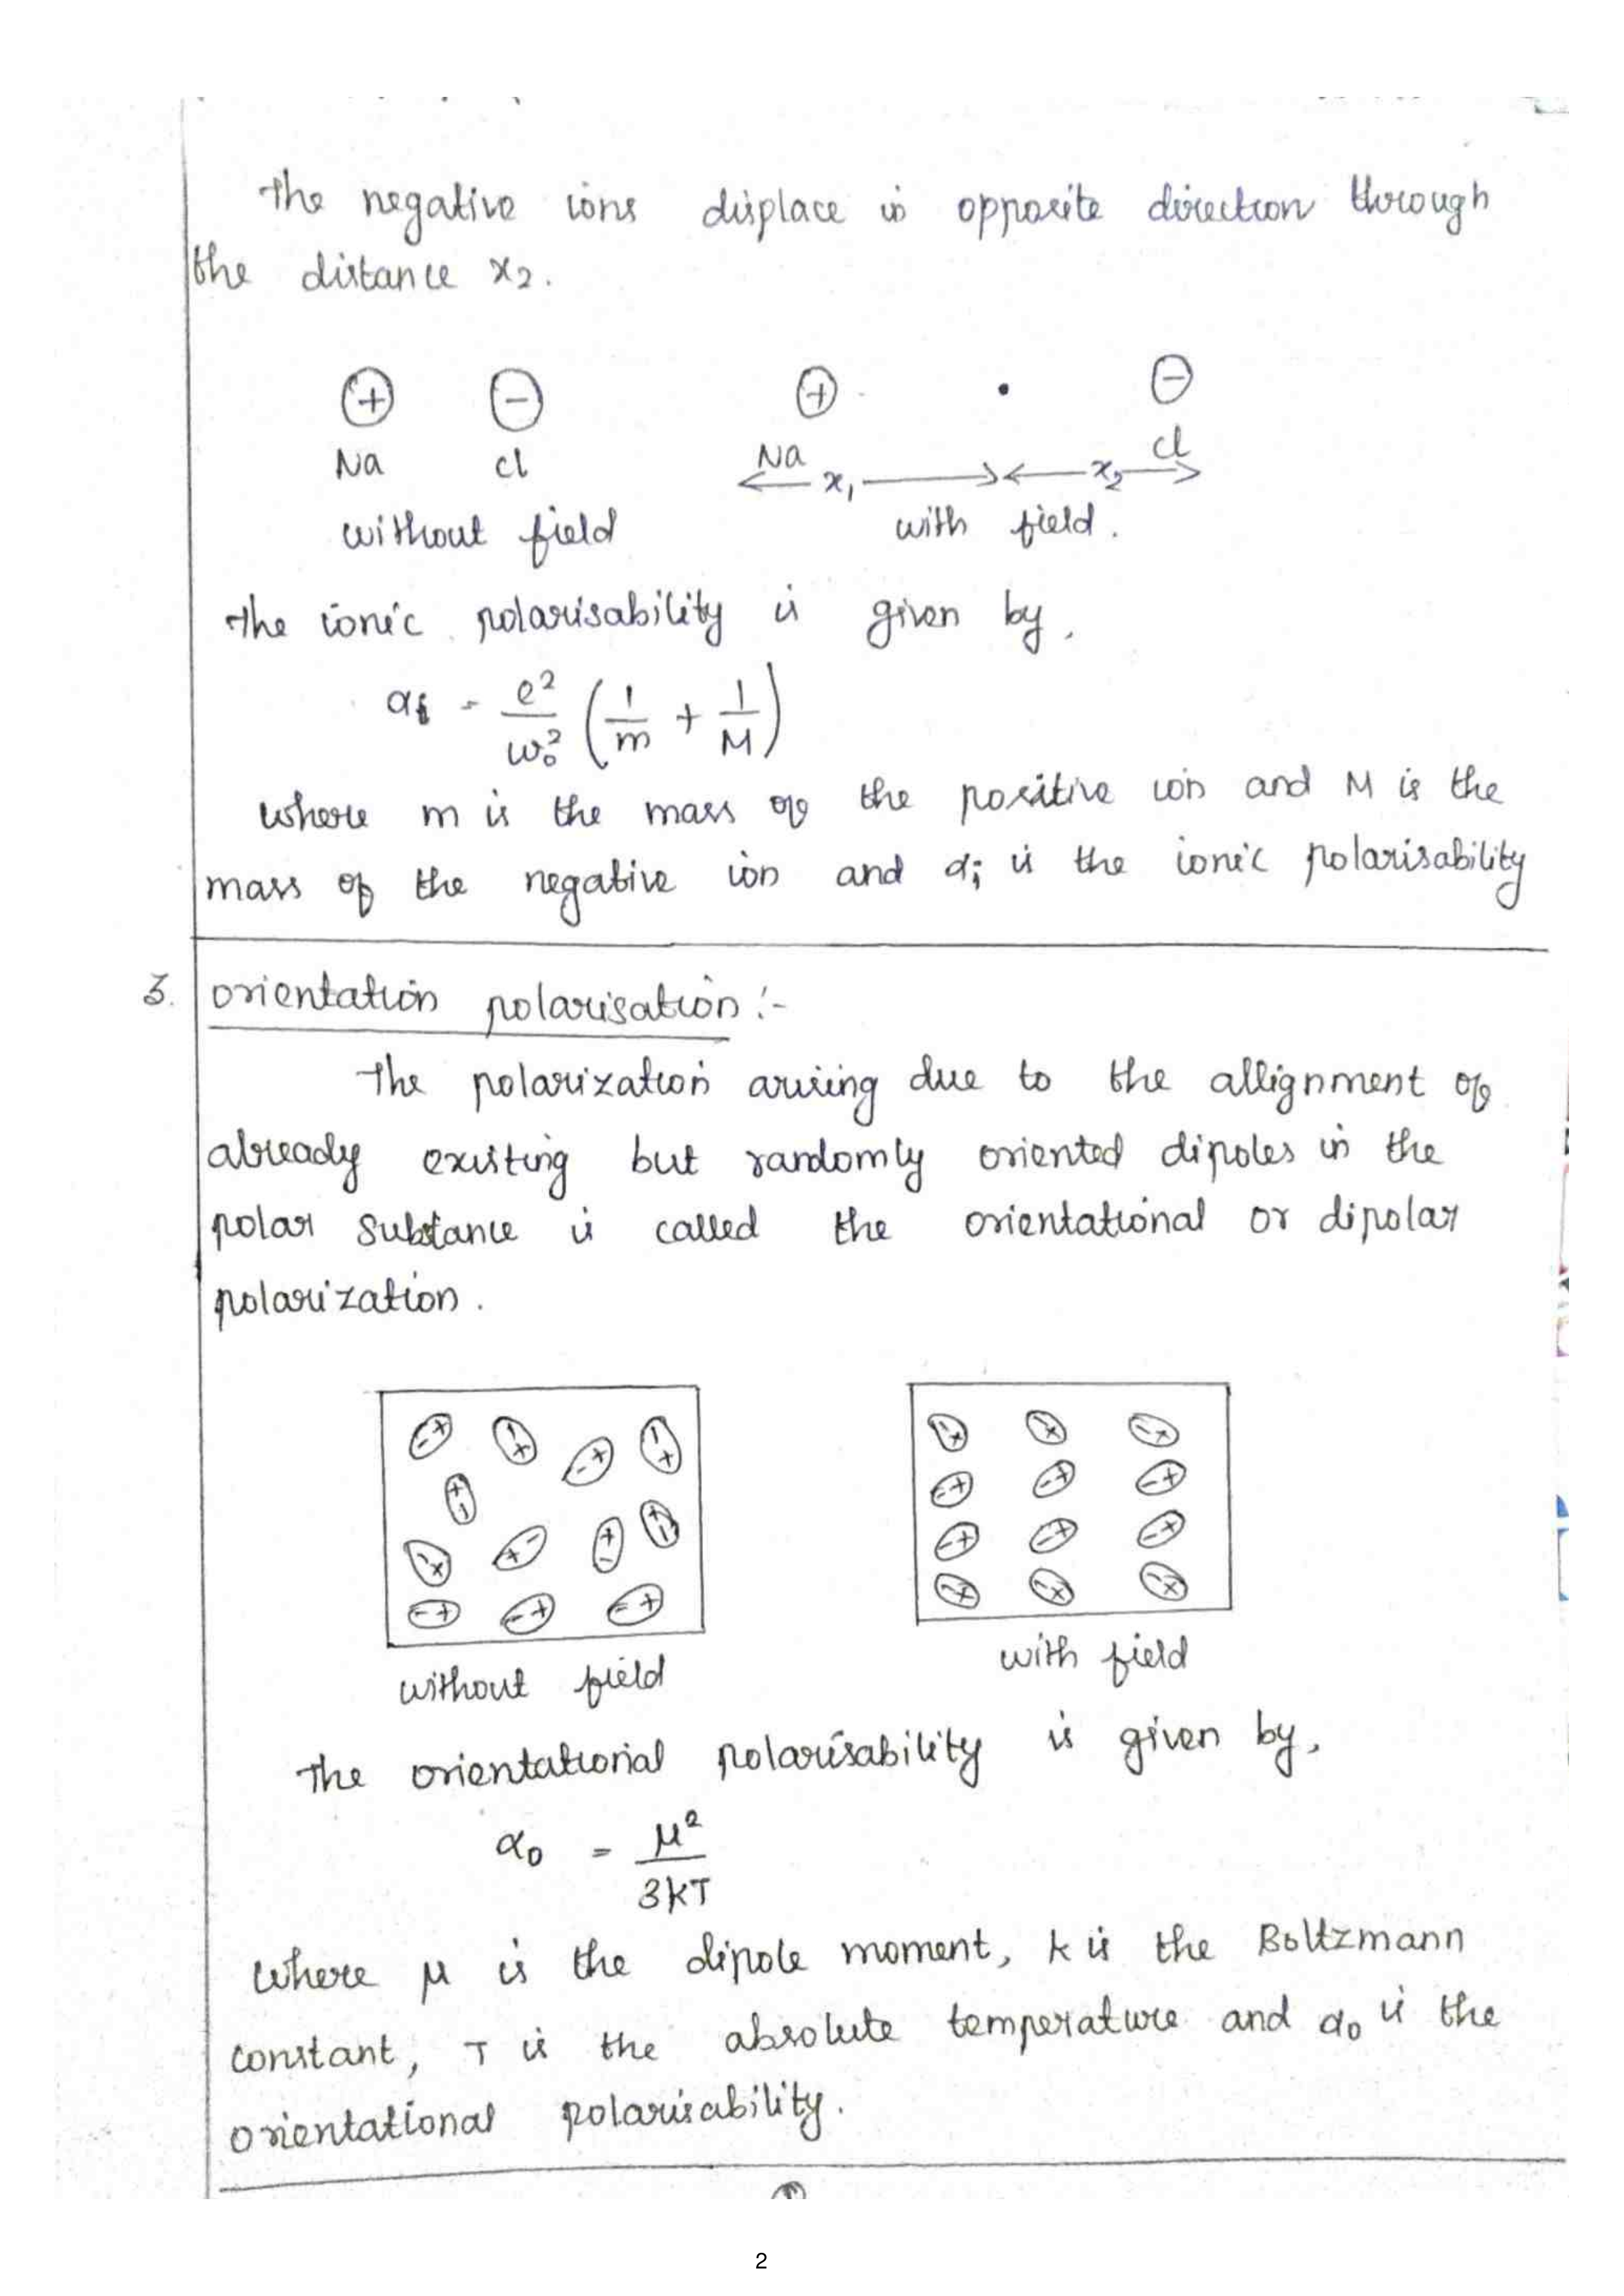 The negative ions displace in opposite direction through
the distance x₂.
+ - + • -
Na Cl Na Cl
x₁ x₂
without field with field.
The ionic polarisability is given by,
αi = e²/ω₀² (1/m + 1/M)
Where m is the mass of the positive ion and M is the
mass of the negative ion and αi is the ionic polarisability
3. orientation polarisation :-
The polarization arising due to the allignment of
already existing but randomly oriented dipoles in the
polar substance is called the orientational or dipolar
polarization.
without field with field
The orientational polarisability is given by,
α₀ = μ²/3kT
Where μ is the dipole moment, k is the Boltzmann
constant, T is the absolute temperature and α₀ is the
orientational polarisability.
2